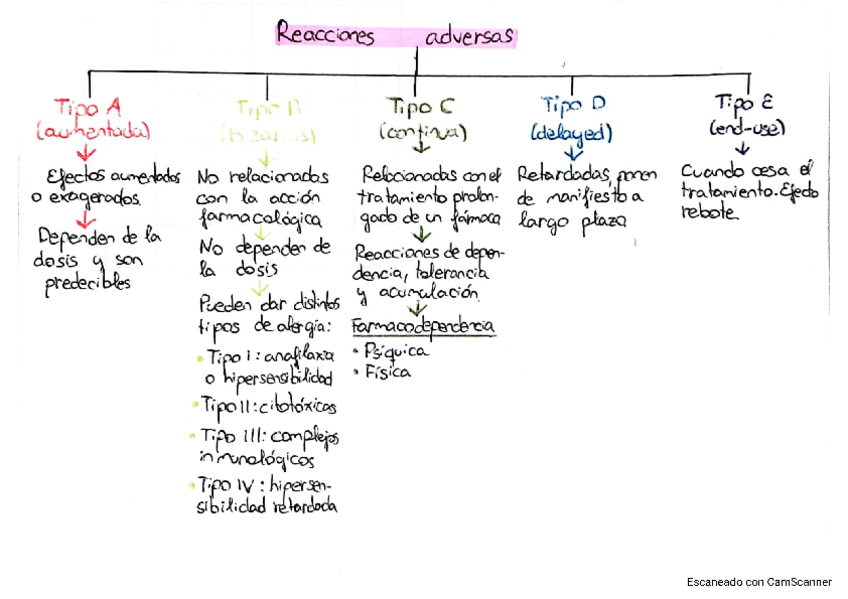 Reacciones adversas
Tipo A
(aumentada)
Efectos aumentados
o exagerados.
Dependen de la
dosis y son
predecibles
Tipo B
No relacionadas
con la acción
farmacológica
No dependen de
la dosis
Pueden dar distintos
tipos de alergia:
• Tipo I: anafilaxia
o hipersensibilidad
• Tipo II: citotóxicos
• Tipo III: complejos
inmunológicos
• Tipo IV: hipersen-
sibilidad retardada
Tipo C
(continua)
Relacionadas con el
tratamiento prolon-
gado de un fármaco
Reacciones de depen-
dencia, tolerancia
y acumulación.
Farmacodependencia
• Psíquica
• Física
Tipo D
(delayed)
Retardadas, ponen
de manifiesto a
largo plazo
Tipo E
(end-use)
Cuando cesa el
tratamiento. Efecto
rebote.
Escaneado con CamScanner